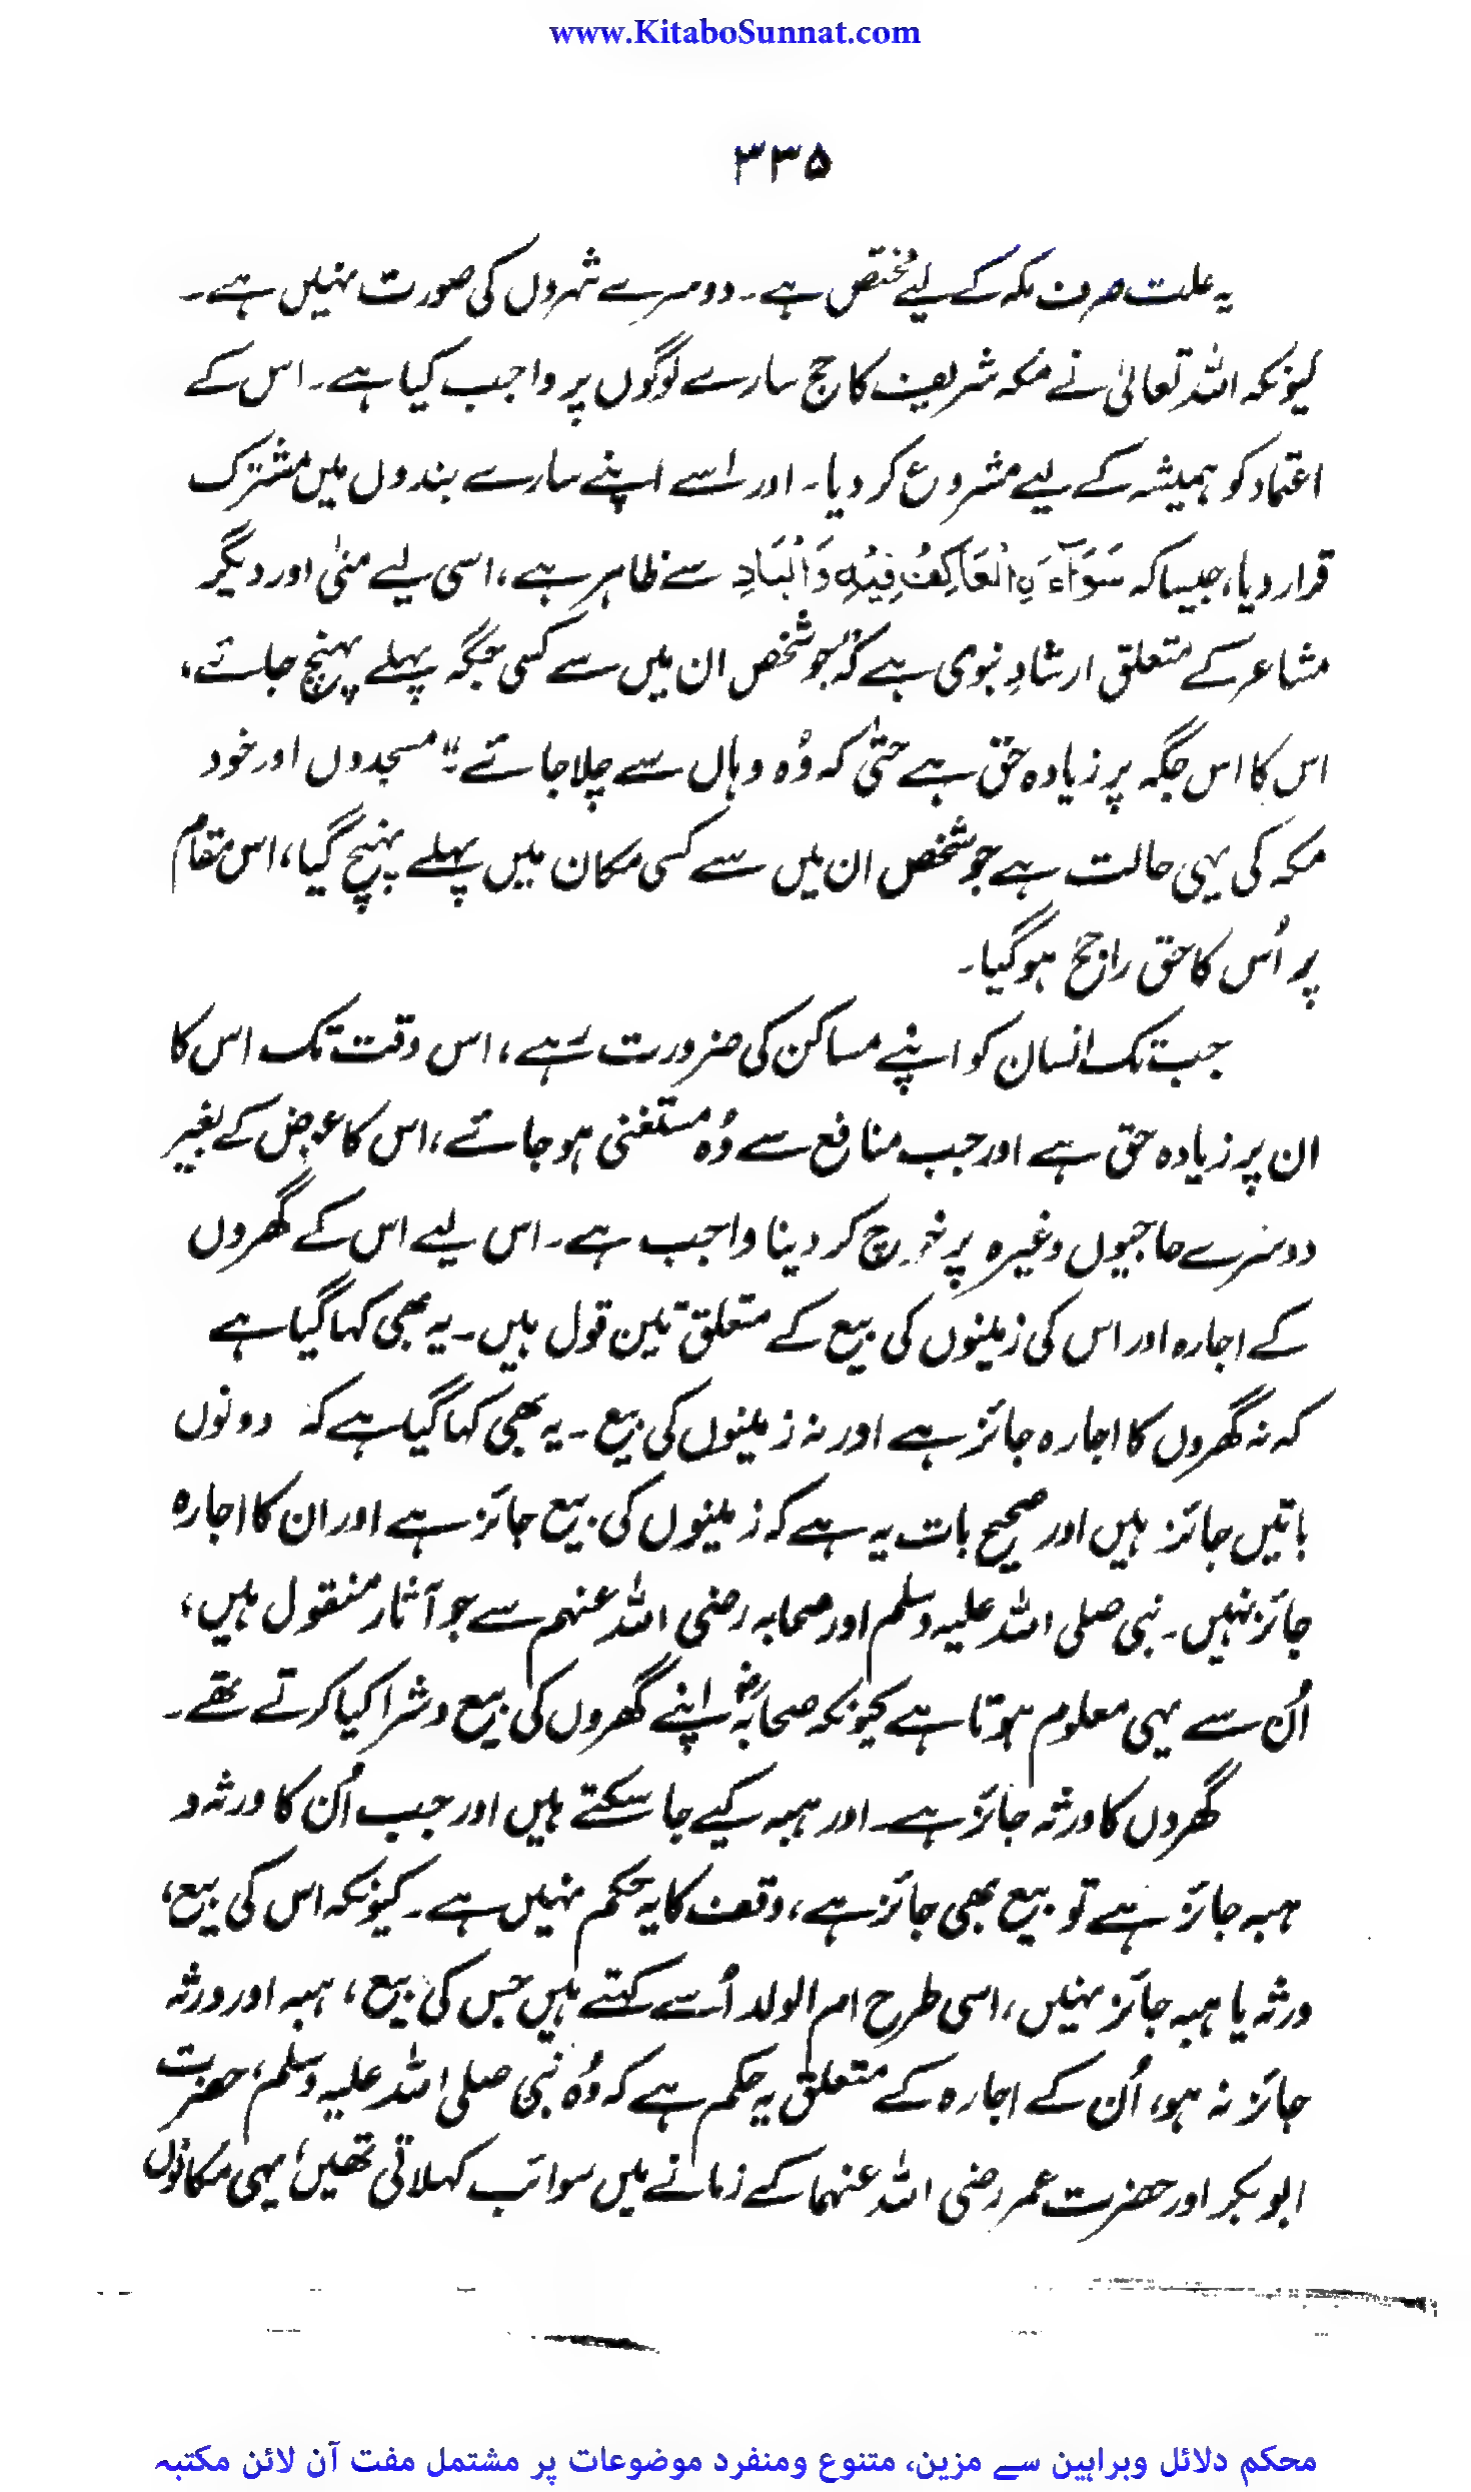 www.KitaboSunnat.com
۳۳۵
یہ علت صرف مکہ کے لیے مختص ہے۔ دوسرے شہروں کی صورت نہیں ہے۔
کیونکہ اللہ تعالیٰ نے مکہ شریف کا حج سارے لوگوں پر واجب کیا ہے۔ اس کے
اعتماد کو ہمیشہ کے لیے مشروع کر دیا۔ اور اسے اپنے سارے بندوں میں مشترک
قرار دیا، جیسا کہ سَوَآءَ نِ الْعَاکِفُ فِیْهِ وَالْبَادِ سے ظاہر ہے، اسی لیے منیٰ اور دیگر
مشاعر کے متعلق ارشادِ نبوی ہے کہ "جو شخص ان میں سے کسی جگہ پہلے پہنچ جائے،
اس کا اس جگہ پر زیادہ حق ہے حتیٰ کہ وُہ وہاں سے چلا جائے"۔ مسجدوں اور خود
مکہ کی یہی حالت ہے جو شخص ان میں سے کسی مکان میں پہلے پہنچ گیا، اس مقام
پر اُس کا حق راجح ہو گیا۔
جب تک انسان کو اپنے مساکن کی ضرورت ہے، اس وقت تک اس کا
ان پر زیادہ حق ہے اور جب منافع سے وُہ مستغنی ہو جائے، اس کا عوض کے بغیر
دوسرے حاجیوں وغیرہ پر خرچ کر دینا واجب ہے۔ اس لیے اس کے گھروں
کے اجارہ اور اس کی زمینوں کی بیع کے متعلق تین قول ہیں۔ یہ بھی کہا گیا ہے
کہ نہ گھروں کا اجارہ جائز ہے اور نہ زمینوں کی بیع۔ یہ بھی کہا گیا ہے کہ دونوں
باتیں جائز ہیں اور صحیح بات یہ ہے کہ زمینوں کی بیع جائز ہے اور ان کا اجارہ
جائز نہیں۔ نبی صلی اللہ علیہ وسلم اور صحابہ رضی اللہ عنہم سے جو آثار منقول ہیں،
اُن سے یہی معلوم ہوتا ہے کیونکہ صحابہؓ اپنے گھروں کی بیع و شرا کیا کرتے تھے۔
گھروں کا ورثہ جائز ہے۔ اور ہبہ کیے جا سکتے ہیں اور جب اُن کا ورثہ و
ہبہ جائز ہے تو بیع بھی جائز ہے، وقف کا یہ حکم نہیں ہے۔ کیونکہ اس کی بیع،
ورثہ یا ہبہ جائز نہیں، اسی طرح ام الولد اُسے کہتے ہیں جس کی بیع، ہبہ اور ورثہ
جائز نہ ہو، اُن کے اجارہ کے متعلق یہ حکم ہے کہ وُہ نبی صلی اللہ علیہ وسلم، حضرت
ابوبکر اور حضرت عمر رضی اللہ عنہما کے زمانے میں سوائب کہلاتی تھیں، یہی مکانوں
محکم دلائل وبراہین سے مزین، متنوع ومنفرد موضوعات پر مشتمل مفت آن لائن مکتبہ